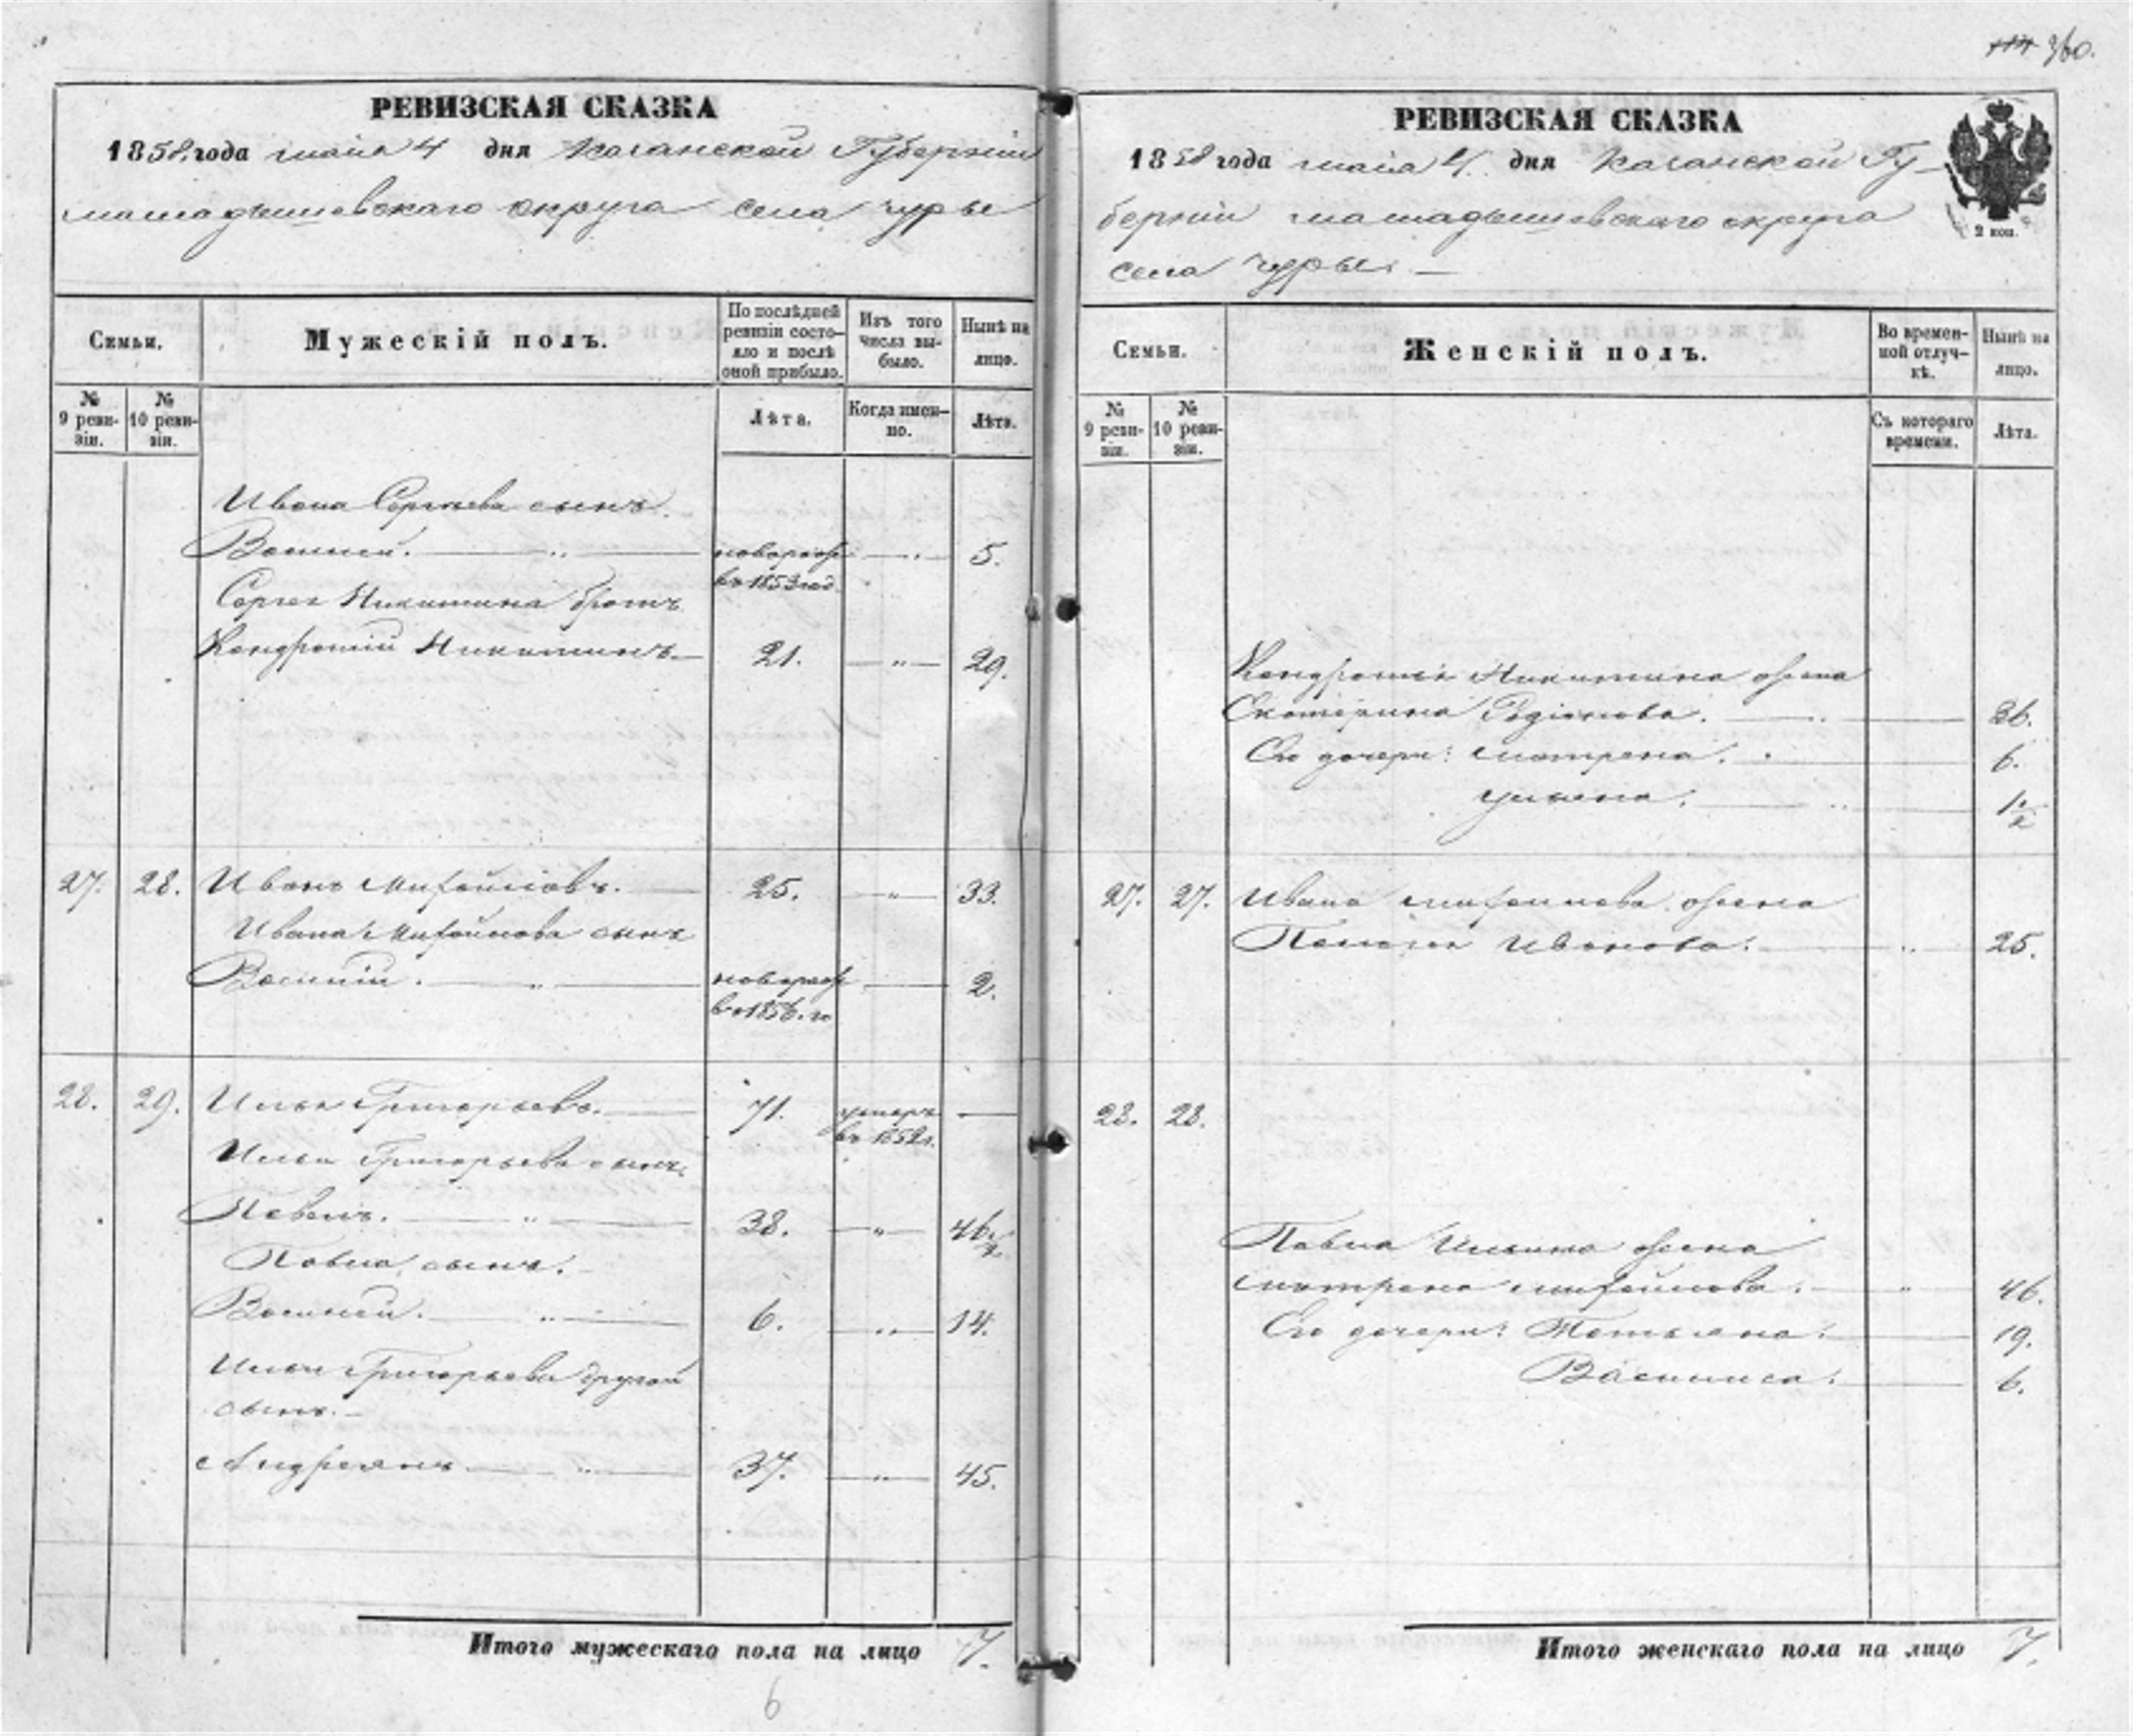 360.
РЕВИЗСКАЯ СКАЗКА
1858 года маія 4 дня Казанской Губерніи
мамадышевскаго округа села чуры
Семьи.
Мужескій полъ.
По послѣдней ревизіи состояло и послѣ оной прибыло.
Изъ того числа выбыло.
Нынѣ на лицо.
№ 9 ревизіи.
№ 10 ревизіи.
Лѣта.
Когда именно.
Лѣта.
Ивана Сергѣева сынъ
Василей. — " — новорож. — " — 5.
въ 1853 год
Сергея Никитина братъ
Кондратій Никитинъ — 21. — " — 29.
27. 28. Иванъ Михайловъ. — 25. — " — 33.
Ивана Михайлова сынъ
Василій. — " — новорож — 2.
въ 1856. го
28. 29. Илья Григорьевъ. — 71. умеръ —
въ 1852 г.
Ильи Григорьева сынъ
Павелъ. — " — 38. — " — 46.
Павла сынъ.
Василей. — " — 6. — " — 14.
Ильи Григорьева другой
сынъ. —
Андреянъ — " — 37. — " — 45.
Итого мужескаго пола на лицо 7.
6
РЕВИЗСКАЯ СКАЗКА
1858 года маія 4. дня Казанской Гу-
берніи мамадышевскаго округа
села чуры. —
2 коп.
Семьи.
Женскій полъ.
Во временной отлучкѣ.
Нынѣ на лицо.
№ 9 ревизіи.
№ 10 ревизіи.
Съ котораго времени.
Лѣта.
Кондратія Никитина жена
Екатерина Родіонова. — " — 36.
Его дочери: матрена. — 6.
ульяна. — " — 1/2
27. 27. Ивана михайлова жена
Пелагея Иванова. — " — 25.
28. 28.
Павла Ильина жена
матрена михайлова. — " — 46.
Его дочери: Татьяна. — 19.
Василиса. — 6.
Итого женскаго пола на лицо 7.